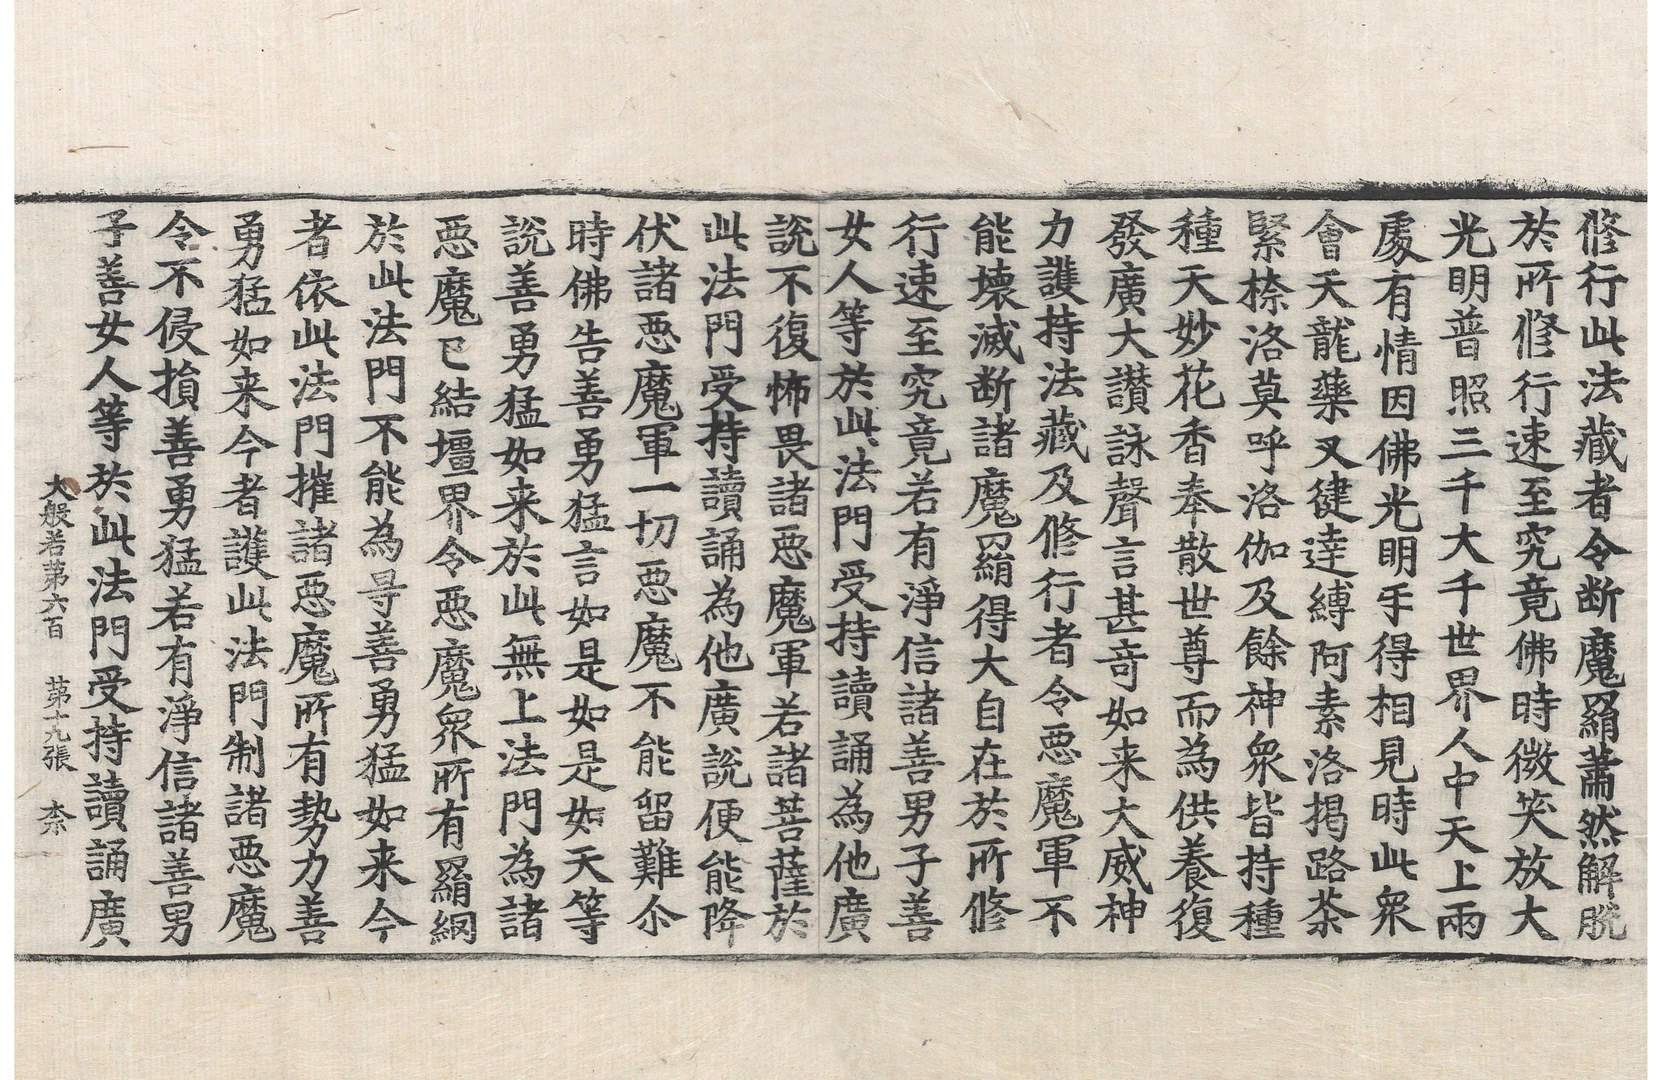 修行此法藏者令断魔羂蕭然解脫
於所修行速至究竟佛時微笑放大
光明普照三千大千世界人中天上兩
處有情因佛光明手得相見時此衆
會天龍藥叉健達縛阿素洛揭路茶
緊捺洛莫呼洛伽及餘神衆皆持種
種天妙花香奉散世尊而為供養復
發廣大讃詠聲言甚奇如来大威神
力護持法藏及修行者令惡魔軍不
能壞滅断諸魔羂得大自在於所修
行速至究竟若有淨信諸善男子善
女人等於此法門受持讀誦為他廣
說不復怖畏諸惡魔軍若諸菩薩於
此法門受持讀誦為他廣說便能降
伏諸惡魔軍一切惡魔不能留難尒
時佛告善勇猛言如是如是如天等
說善勇猛如来於此無上法門為諸
惡魔已結壃界令惡魔衆所有羂網
於此法門不能為㝵善勇猛如来今
者依此法門摧諸惡魔所有勢力善
勇猛如来今者護此法門制諸惡魔
令不侵損善勇猛若有淨信諸善男
子善女人等於此法門受持讀誦廣
大般若苐六百 苐十九張 柰